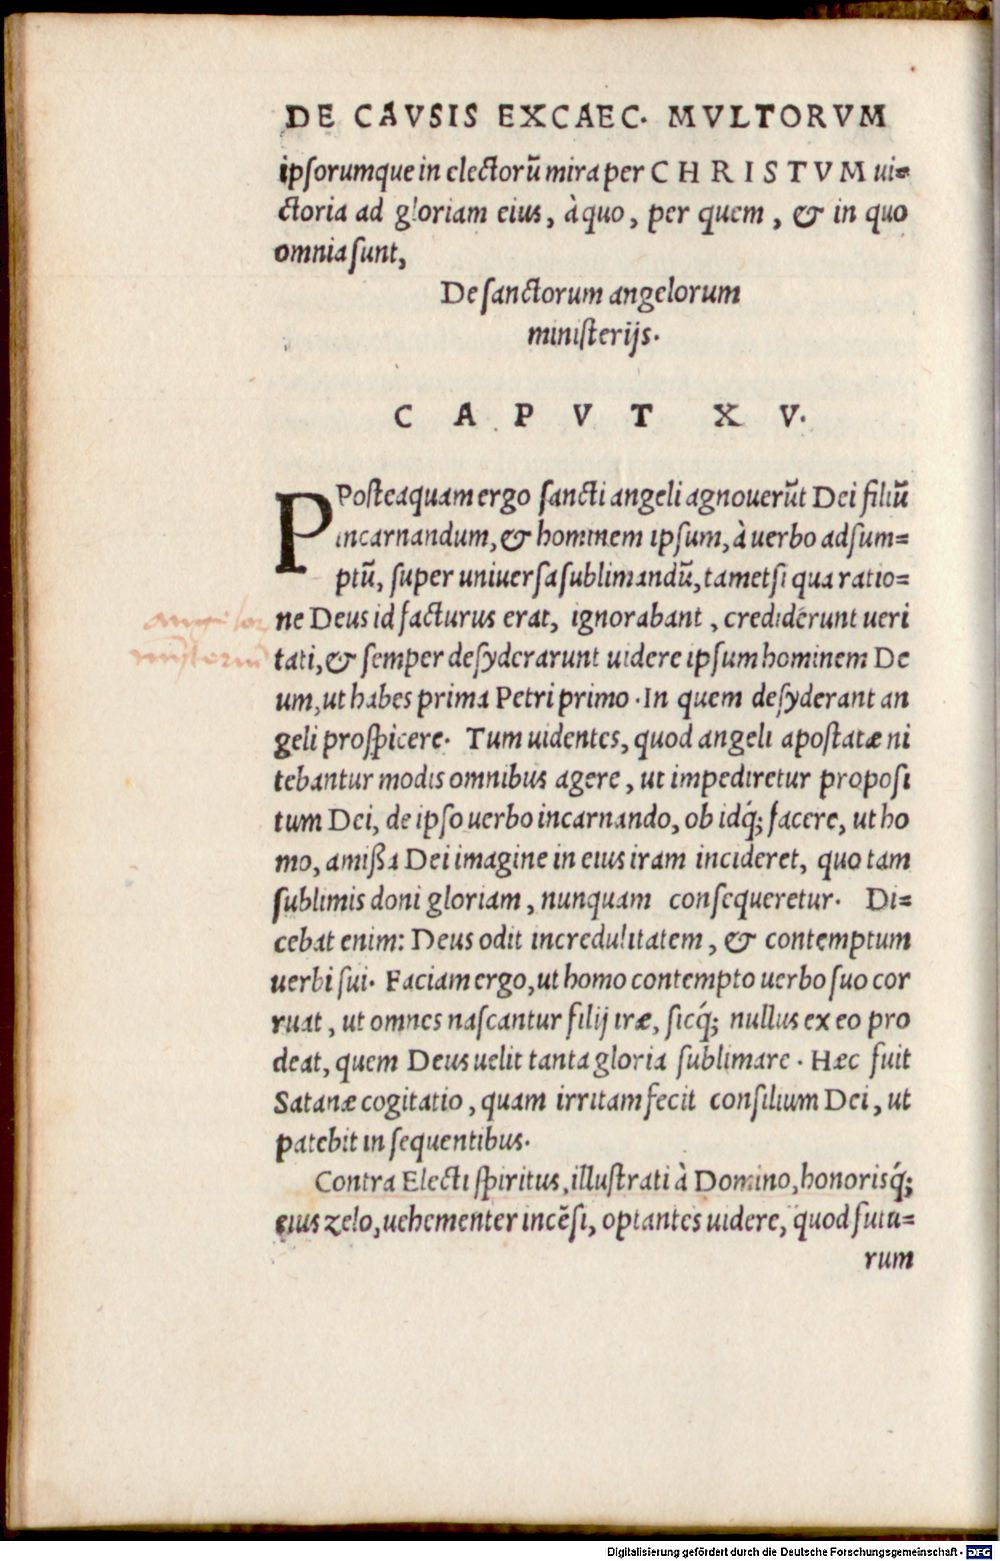 DE CAVSIS EXCAEC. MVLTORVM
ipsorumque in electorũ mira per CHRISTVM ui=
ctoria ad gloriam eius, à quo, per quem, & in quo
omnia sunt,
De sanctorum angelorum
ministerijs.
CAPVT XV.
PPosteaquam ergo sancti angeli agnouerũt Dei filiũ
incarnandum, & hominem ipsum, à uerbo adsum=
ptũ, super uniuersa sublimandũ, tametsi qua ratio=
ne Deus id facturus erat, ignorabant, crediderunt ueri
tati, & semper desyderarunt uidere ipsum hominem De
um, ut habes prima Petri primo. In quem desyderant an
geli prospicere. Tum uidentes, quod angeli apostatæ ni
tebantur modis omnibus agere, ut impediretur proposi
tum Dei, de ipso uerbo incarnando, ob idq́; facere, ut ho
mo, amißa Dei imagine in eius iram incideret, quo tam
sublimis doni gloriam, nunquam consequeretur. Di=
cebat enim: Deus odit incredulitatem, & contemptum
uerbi sui. Faciam ergo, ut homo contempto uerbo suo cor
ruat, ut omnes nascantur filij iræ, sicq́; nullus ex eo pro
deat, quem Deus uelit tanta gloria sublimare. Hæc fuit
Satanæ cogitatio, quam irritam fecit consilium Dei, ut
patebit in sequentibus.
Contra Electi spiritus, illustrati à Domino, honorisq́;
eius zelo, uehementer incẽsi, optantes uidere, quod futu=
rum
Digitalisierung gefördert durch die Deutsche Forschungsgemeinschaft - DFG